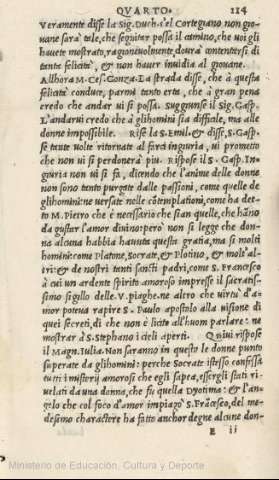 QVARTO. 114
Veramente disse la Sig. Duch. s'el Cortegiano non gio-
uane sarà tale, che seguitar possa il camino, che uoi gli
hauete mostrato, ragioneuolmente dourà contentarsi di
tanta felicità, & non hauer inuidia al giouane.
Allhora M. Ces. Gonza. La strada disse, che à questa
felicità conduce, parmi tanto erta, che à gran pena
credo che andar ui si possa. Suggiunse il Sig. Gasp.
L'andarui credo che à glihomini sia difficile, ma alle
donne impossibile. Rise la S. Emil. & disse, S. Gasp.
se tante uolte ritornate al farci inguria, ui prometto
che non ui si perdonerà piu. Rispose il S. Gasp. In-
guria non ui si fa, dicendo che l'anime delle donne
non sono tanto purgate dalle passioni, come quelle de
glihomini: ne uersate nelle cõtemplationi, come ha det-
to M. Pietro che è necessario che sian quelle, che hãno
da gustar l'amor diuino: però non si legge che don-
na alcuna habbia hauuta questa gratia, ma si molti
homini: come Platone, Socrate, & Plotino, & molt'al-
tri: & de nostri tanti sancti padri, come S. Francesco
à cui un ardente spirito amoroso impresse il sacratis-
simo sigillo delle .V. piaghe. ne altro che uirtù d'a-
mor poteua rapire S. Paulo apostolo alla uisione di
quei secreti, di che non è licito all'huom parlare: ne
mostrar à S. Stephano i cieli aperti. Quiui rispose
il Magn. Iulia. Non saranno in questo le donne punto
superate da glihomini: perche Socrate istesso confessa
tutti i misterij amorosi che egli sapea, essergli stati ri-
uelati da una donna, che fu quella Dyotima: & l'an-
gelo che col foco d'amor impiagò S. Frãcesco, del me-
desimo charactere ha fatto anchor degne alcune don-
E ii
Ministerio de Educación, Cultura y Deporte